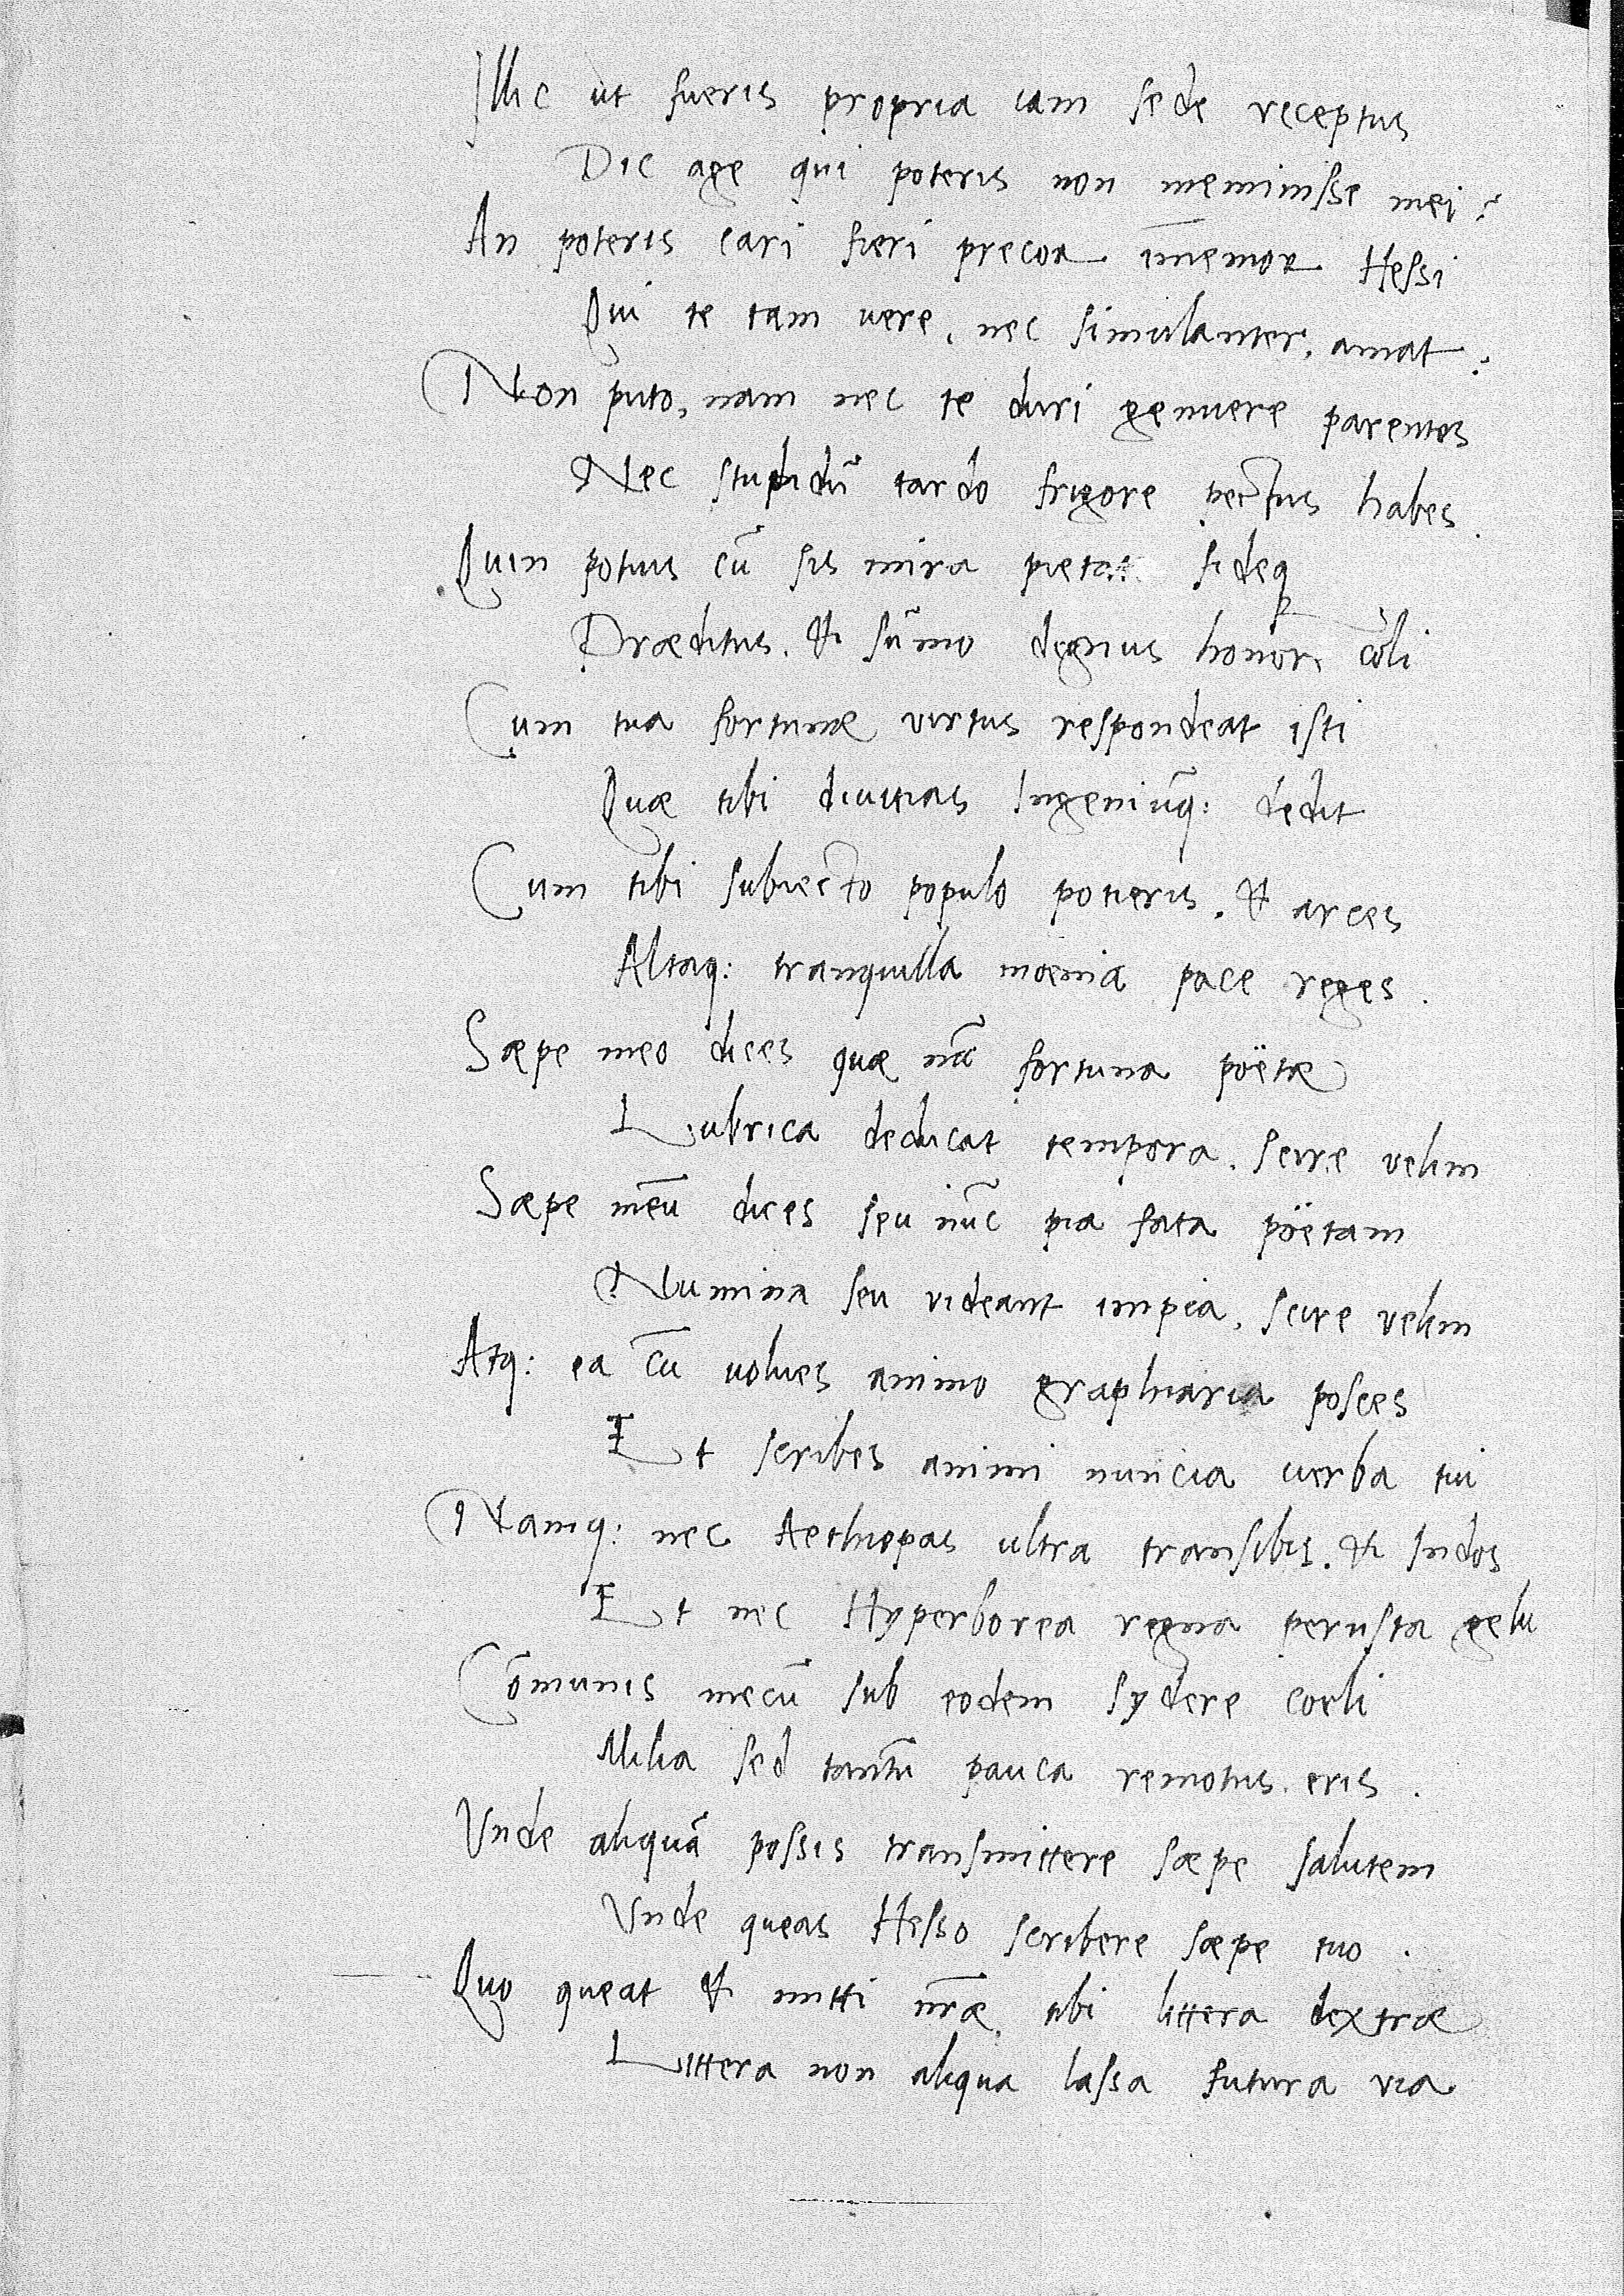 Illic ut fueris propria iam sede receptus
Dic age qui poteris non meminisse mei?
An poteris cari fieri precor im̄emor Hessi
Qui te tam uere, nec simulanter, amat?
Non puto, nam nec te duri genuere parentes
Nec stupidū tardo frigore pectus habes.
Quin potius cū sis mira pietate fideq
Præditus. & sūmo dignus honore coli
Cum tua fortunæ virtus respondeat isti
Quæ tibi diuitias Ingeniūq: dedit
Cum tibi subiecto populo potieris. & arces
Altaq: tranquilla moenia pace reges.
Sæpe meo dices quæ nūc fortuna poëtæ
Lubrica deducat tempora. scire velim
Sæpe meū dices seu nūc pia fata poëtam
Numina seu videant impia, scire velim
Atq: ea cū uolues animo graphiaria posces
Et scribes animi nuncia uerba tui
Namq: nec Aethiopas ultra transibis. & Indos
Et nec Hyperborea regna perusta gelu
Cōmunis mecū sub eodem sydere coeli
Milia sed tantū pauca remotus eris.
Vnde aliquā possis transmittere sæpe salutem
Vnde queas Hesso scribere sæpe tuo.
Quo queat & mitti nr̄æ tibi littera dextræ
Littera non aliqua lassa futura via